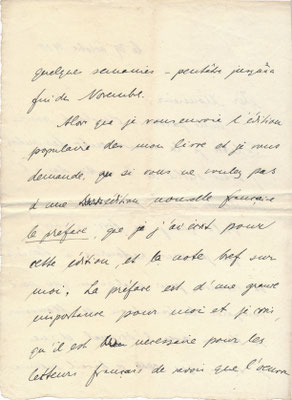 quelques semaines – peutêtre jusqu'à
fin de Novembre.
Alors que je vous envoie l'édition
populaire des mon livre et je vous
demande, si vous ne voulez pas
à une édition nouvelle française
le préface, que je j'ai écrit pour
cette édition, et la note bref sur
moi. La préface est d'une grande
importance pour moi et je crois,
qu'il est necessaire pour les
letteurs français de savoir que l'oeuvre